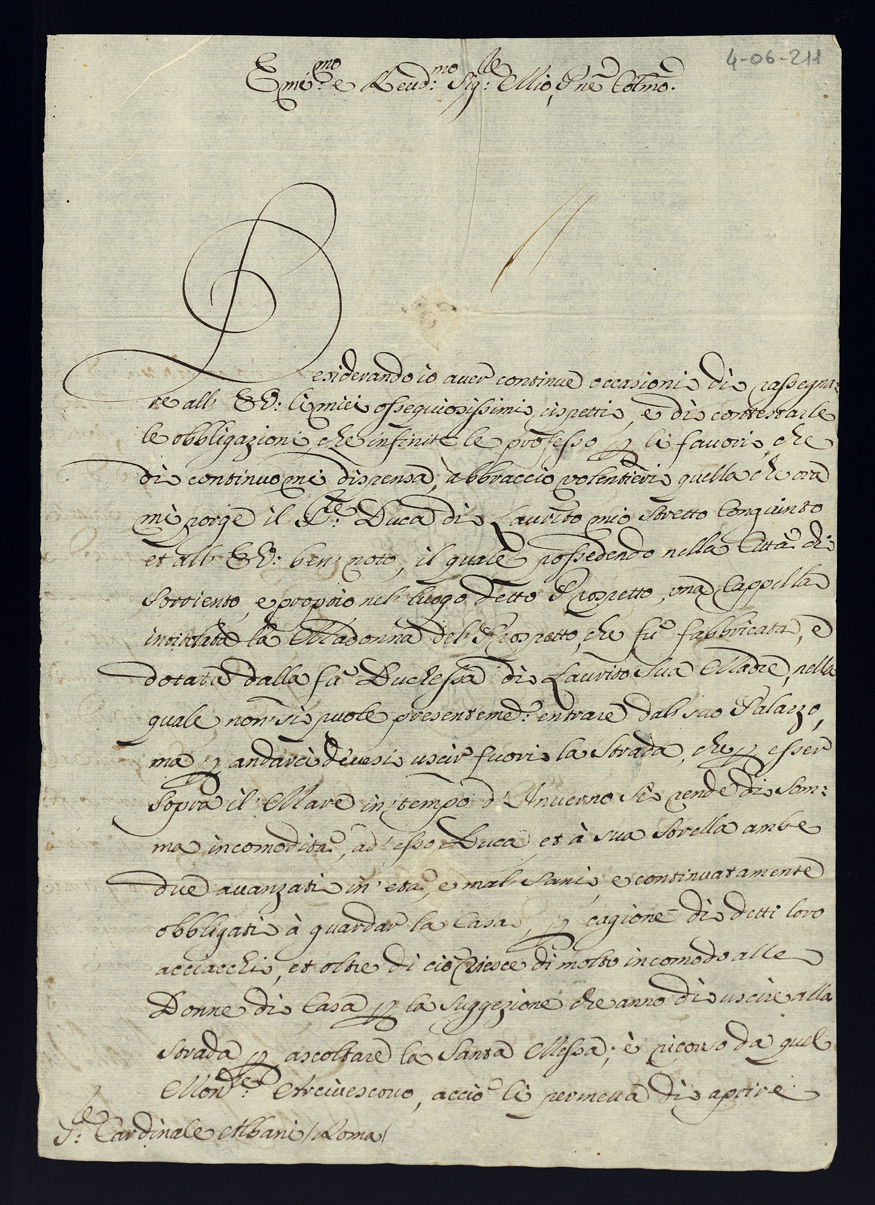 4-06-211
Emi:mo e Reud:mo Sig:re Mio, Pne Colmo.
Desiderando io auer continue occasioni di rassegna-
re all' E.V: li miei ossequiosissimi rispetti, e di contestarle
le obbligazioni, che infinite le professo p li fauori, che
di continuo mi dispensa, abbraccio volentieri quella che ora
mi porge il Sre: Duca di Laurito mio stretto Congiunto
et all' E.V: ben noto, il quale possedendo nella Città di
Sorriento, e proprio nel luogo detto Prospetto, una Cappella
intitolata la Madonna del Prospetto, che fù fabbricata, e
dotata dalla fù Duchessa di Laurito Sua Madre, nella
quale non si puole presenteme: entrare dal suo Palazzo,
ma p andarci deuesi uscir fuori la strada, che p esser
sopra il Mare in tempo d'Inuerno si rende di som-
ma incomodità, ad esso Duca, et à sua Sorella ambe
due auanzati in età, e mal sani, e continuatamente
obbligati à guardar la Casa, p cagione di detti loro
acciacchi, et oltre di ciò riesce di molto incomodo alle
Donne di Casa p la suggezione che anno di uscire alla
strada p ascoltare la Santa Messa; è ricorso da quel
Monre: Arciuescouo, acciò li permetta di aprire
Sre: Cardinale Albani / Roma /